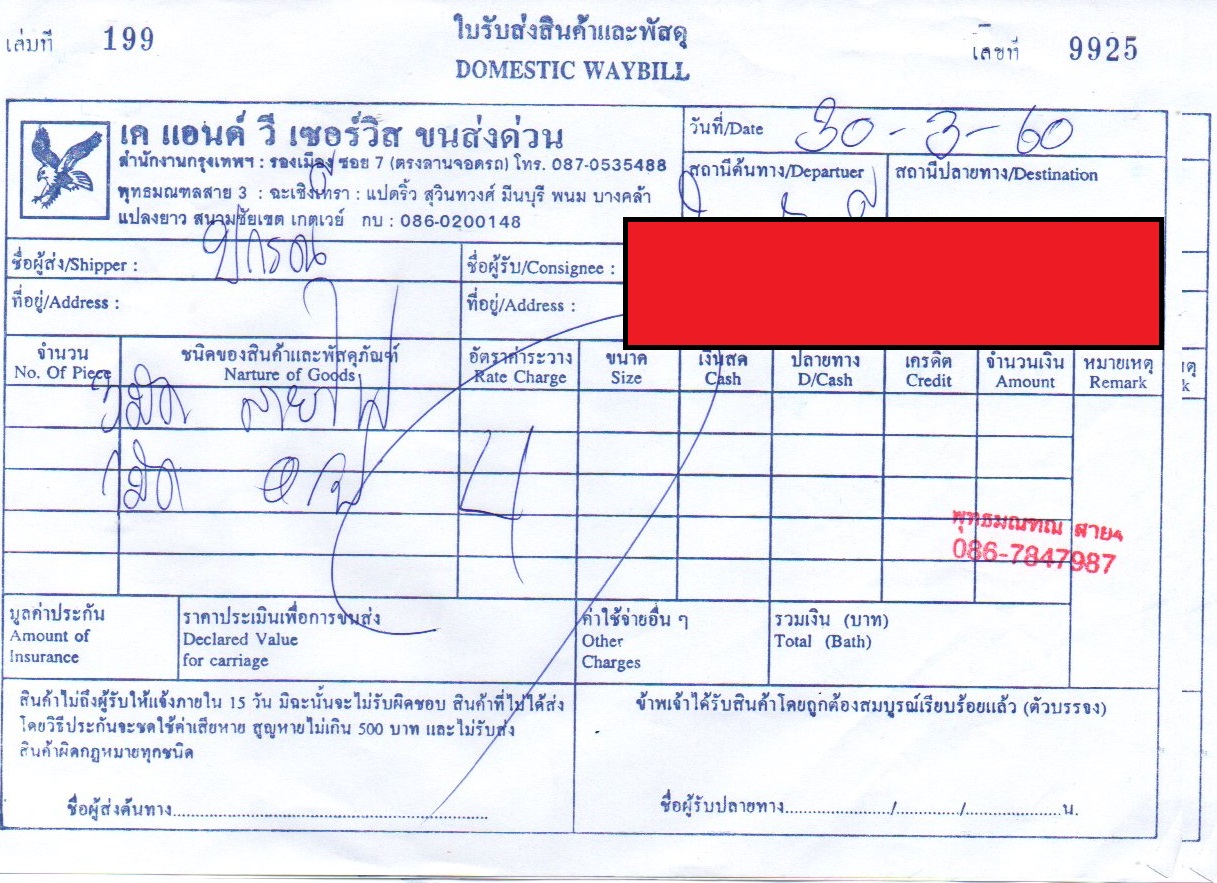 เล่มที่ 199
ใบรับส่งสินค้าและพัสดุ
DOMESTIC WAYBILL
เลขที่ 9925
เค แอนด์ วี เซอร์วิส ขนส่งด่วน
สำนักงานกรุงเทพฯ : รองเมือง ซอย 7 (ตรงลานจอดรถ) โทร. 087-0535488
พุทธมณฑลสาย 3 : ฉะเชิงเทรา : แปดริ้ว สุวินทวงศ์ มีนบุรี พนม บางคล้า
แปลงยาว สนามชัยเขต เกตเวย์ กบ : 086-0200148
วันที่/Date 30-3-60
สถานีต้นทาง/Departuer
สถานีปลายทาง/Destination
ชื่อผู้ส่ง/Shipper :
ชื่อผู้รับ/Consignee :
ที่อยู่/Address :
ที่อยู่/Address :
จำนวน ชนิดของสินค้าและพัสดุภัณฑ์ อัตราค่าระวาง ขนาด เงินสด ปลายทาง เครดิต จำนวนเงิน หมายเหตุ
No. Of Piece Narture of Goods Rate Charge Size Cash D/Cash Credit Amount Remark
พุทธมณฑณ สาย4
086-7847987
มูลค่าประกัน
Amount of
Insurance
ราคาประเมินเพื่อการขนส่ง
Declared Value
for carriage
ค่าใช้จ่ายอื่น ๆ
Other
Charges
รวมเงิน (บาท)
Total (Bath)
สินค้าไม่ถึงผู้รับให้แจ้งภายใน 15 วัน มิฉะนั้นจะไม่รับผิดชอบ สินค้าที่ไม่ได้ส่ง
โดยวิธีประกันจะชดใช้ค่าเสียหาย สูญหายไม่เกิน 500 บาท และไม่รับส่ง
สินค้าผิดกฎหมายทุกชนิด
ชื่อผู้ส่งต้นทาง
ข้าพเจ้าได้รับสินค้าโดยถูกต้องสมบูรณ์เรียบร้อยแล้ว (ตัวบรรจง)
ชื่อผู้รับปลายทาง / / น.